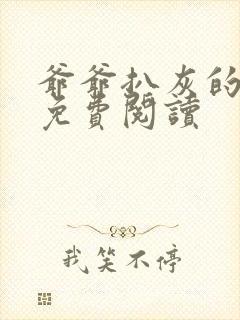 爺爺扒灰的
免費閱讀
我笑不停